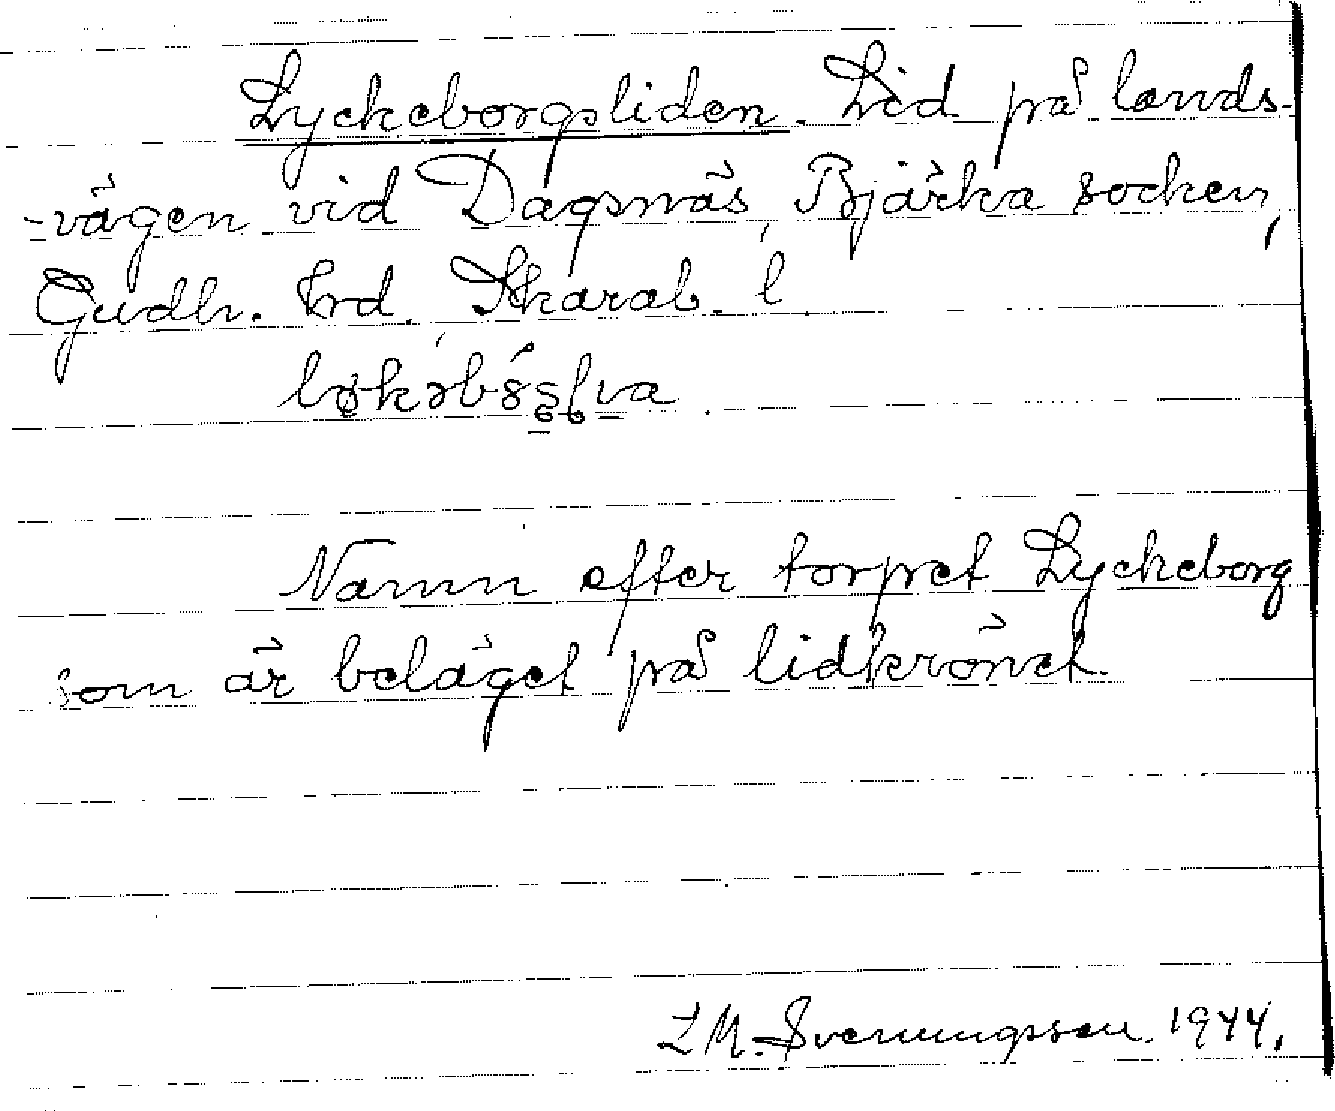 Lyckeborgsliden. Lid på lands-
-vägen vid Dagsnäs, Bjärka socken,
Gudh. hrd. Skarab. l.
Namn efter torpet Lyckeborg
som är beläget på lidkrönet.
L M. Svenungsson. 1944.